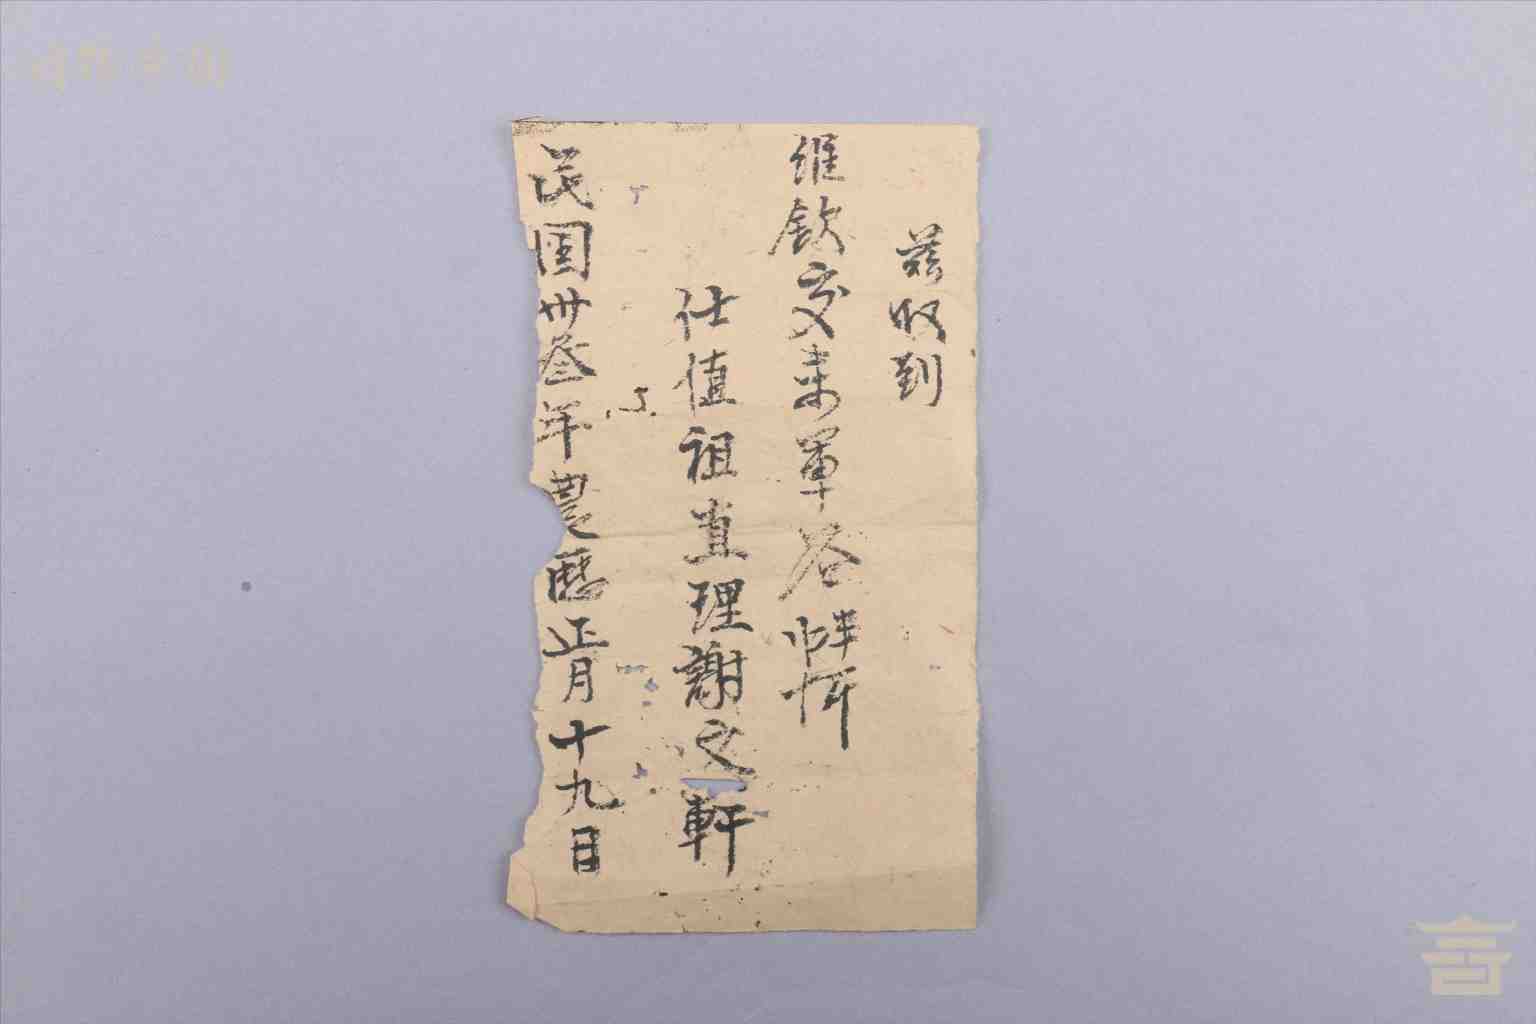 茲收到
維欽交來軍谷
仕值祖直理謝之軒
民国卅叁年農曆正月十九日